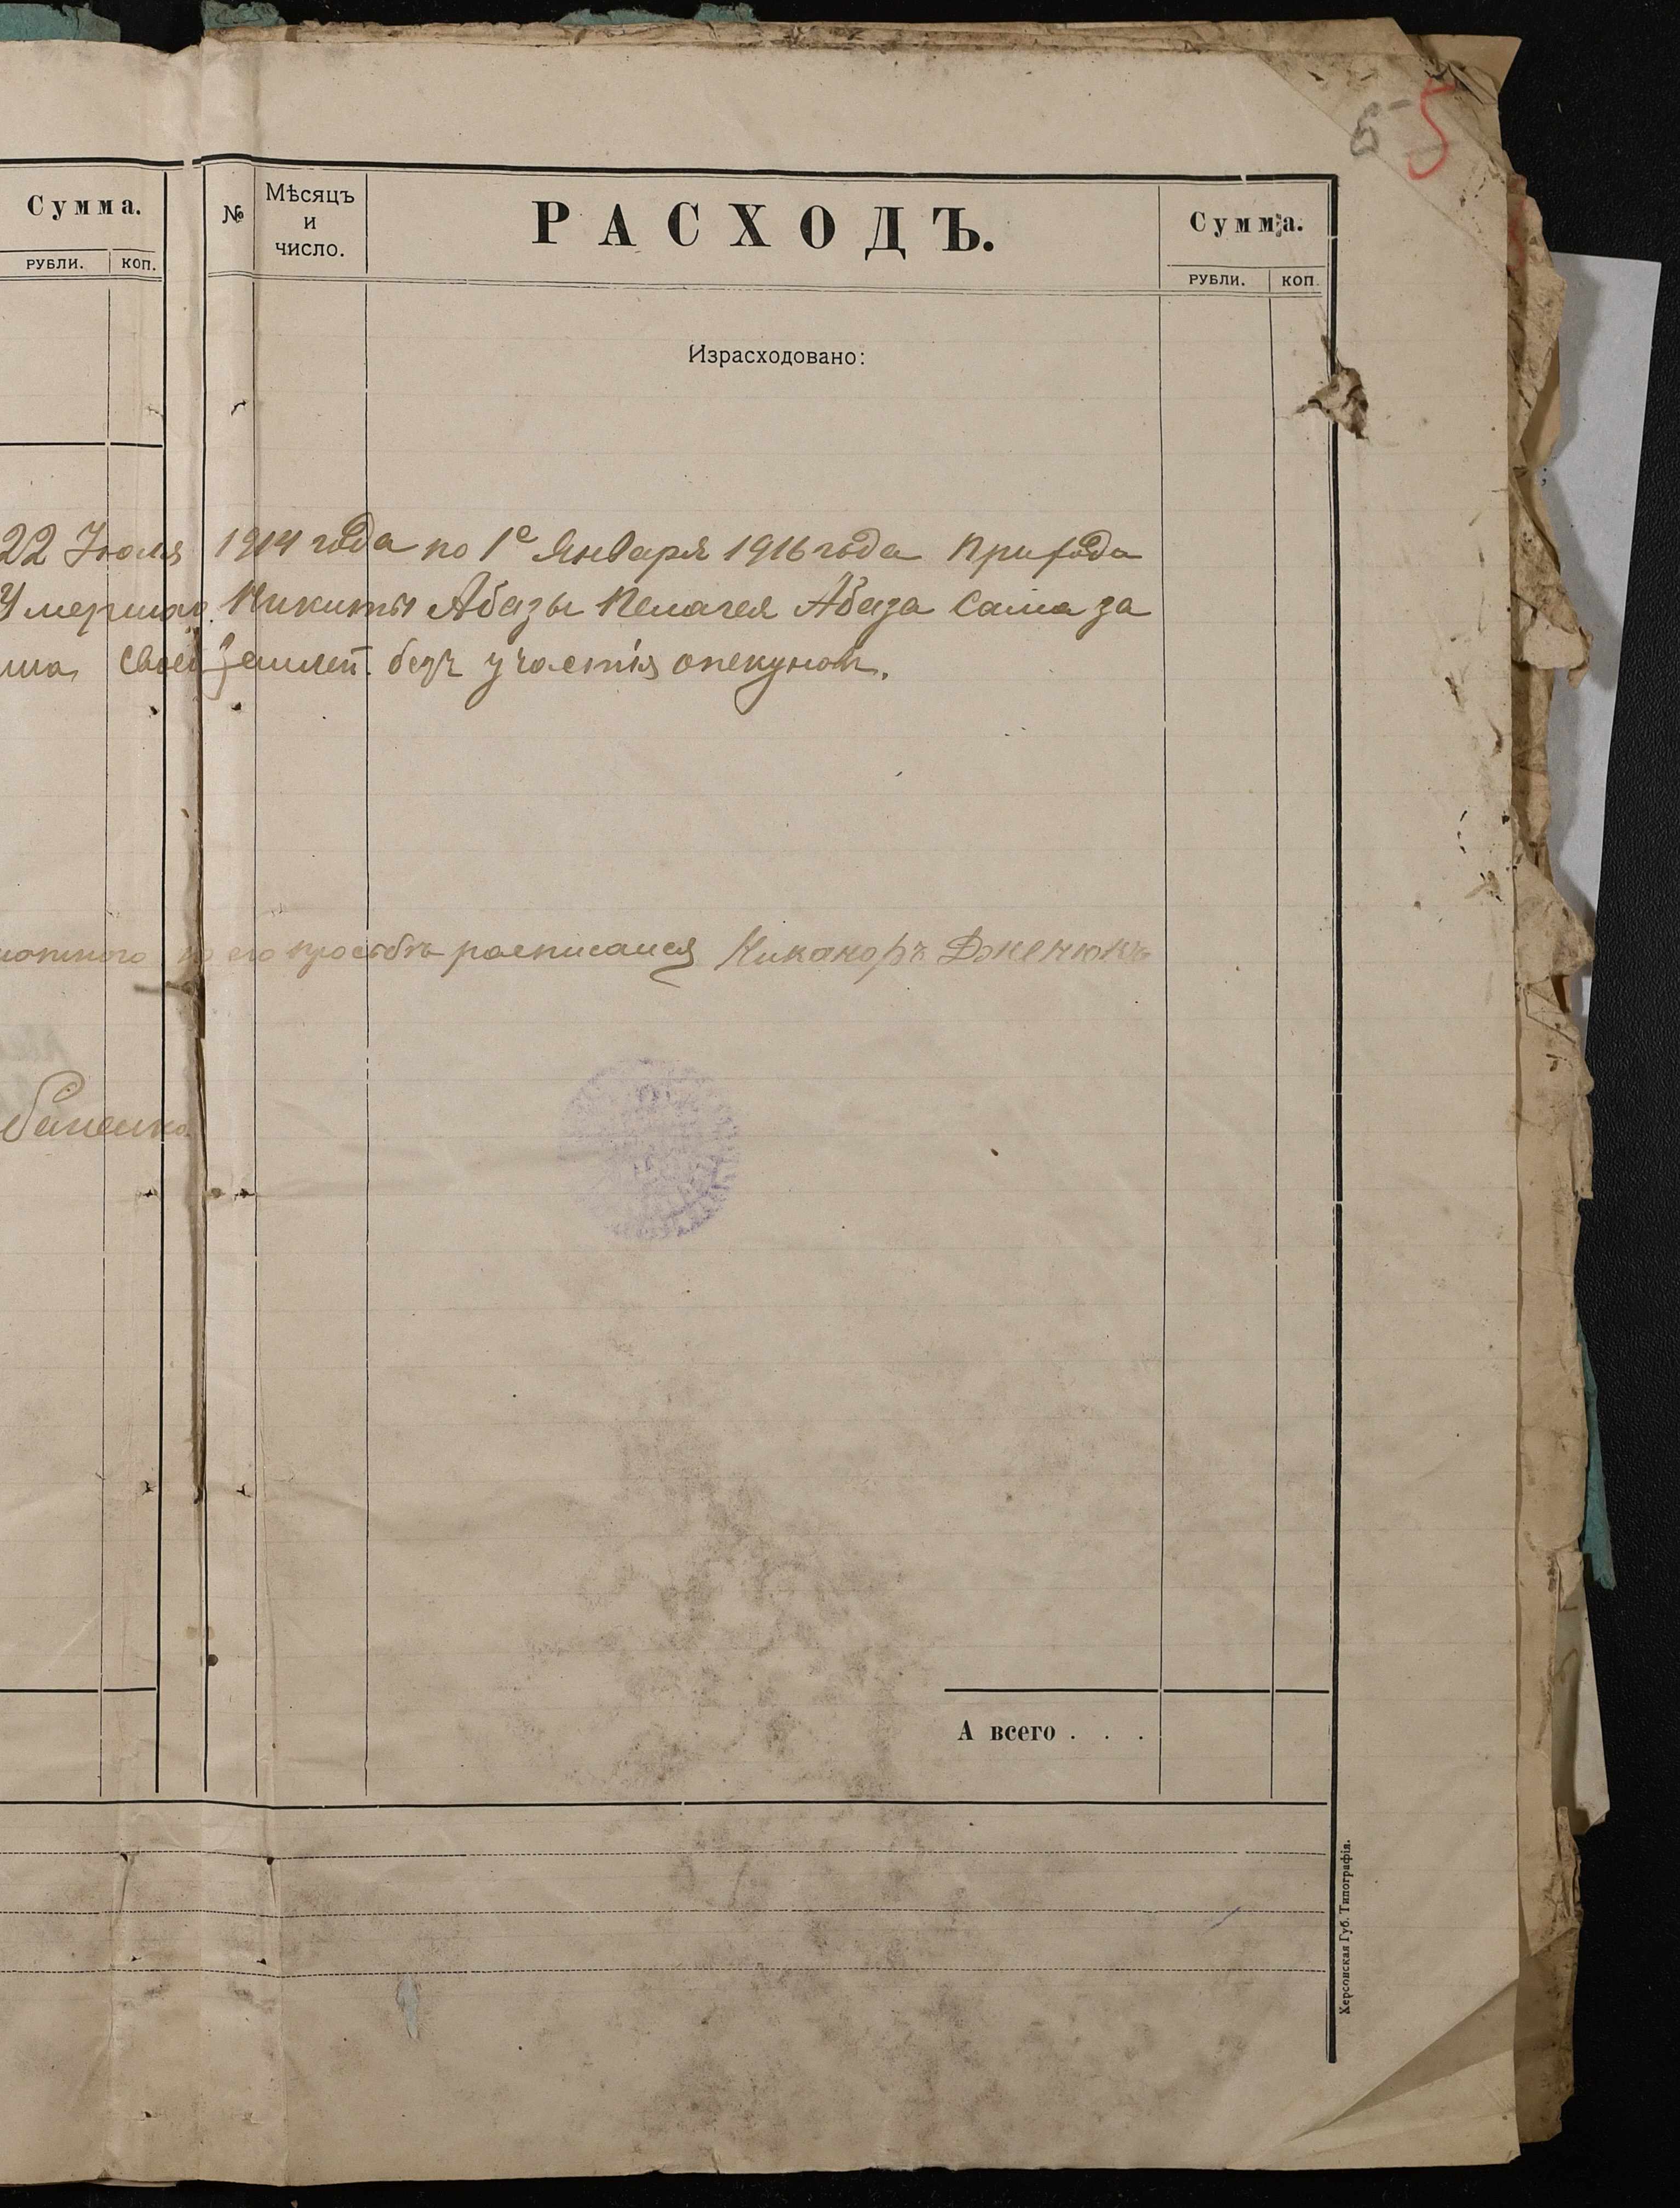 5 5
Сумма.
РУБЛИ. КОП.
№
Мѣсяцъ
и
число.
РАСХОДЪ.
Сумма.
РУБЛИ. КОП.
Израсходовано:
22 Іюля 1914 года по 1е Января 1916 года прихода
Умершаго Никиты Абазы Пелагея Абаза сама за
своей землей. безъ участія опекунов.
по его просьбѣ расписался Никаноръ Дженюкъ
А всего . . .
Херсонская Губ. Типографія.